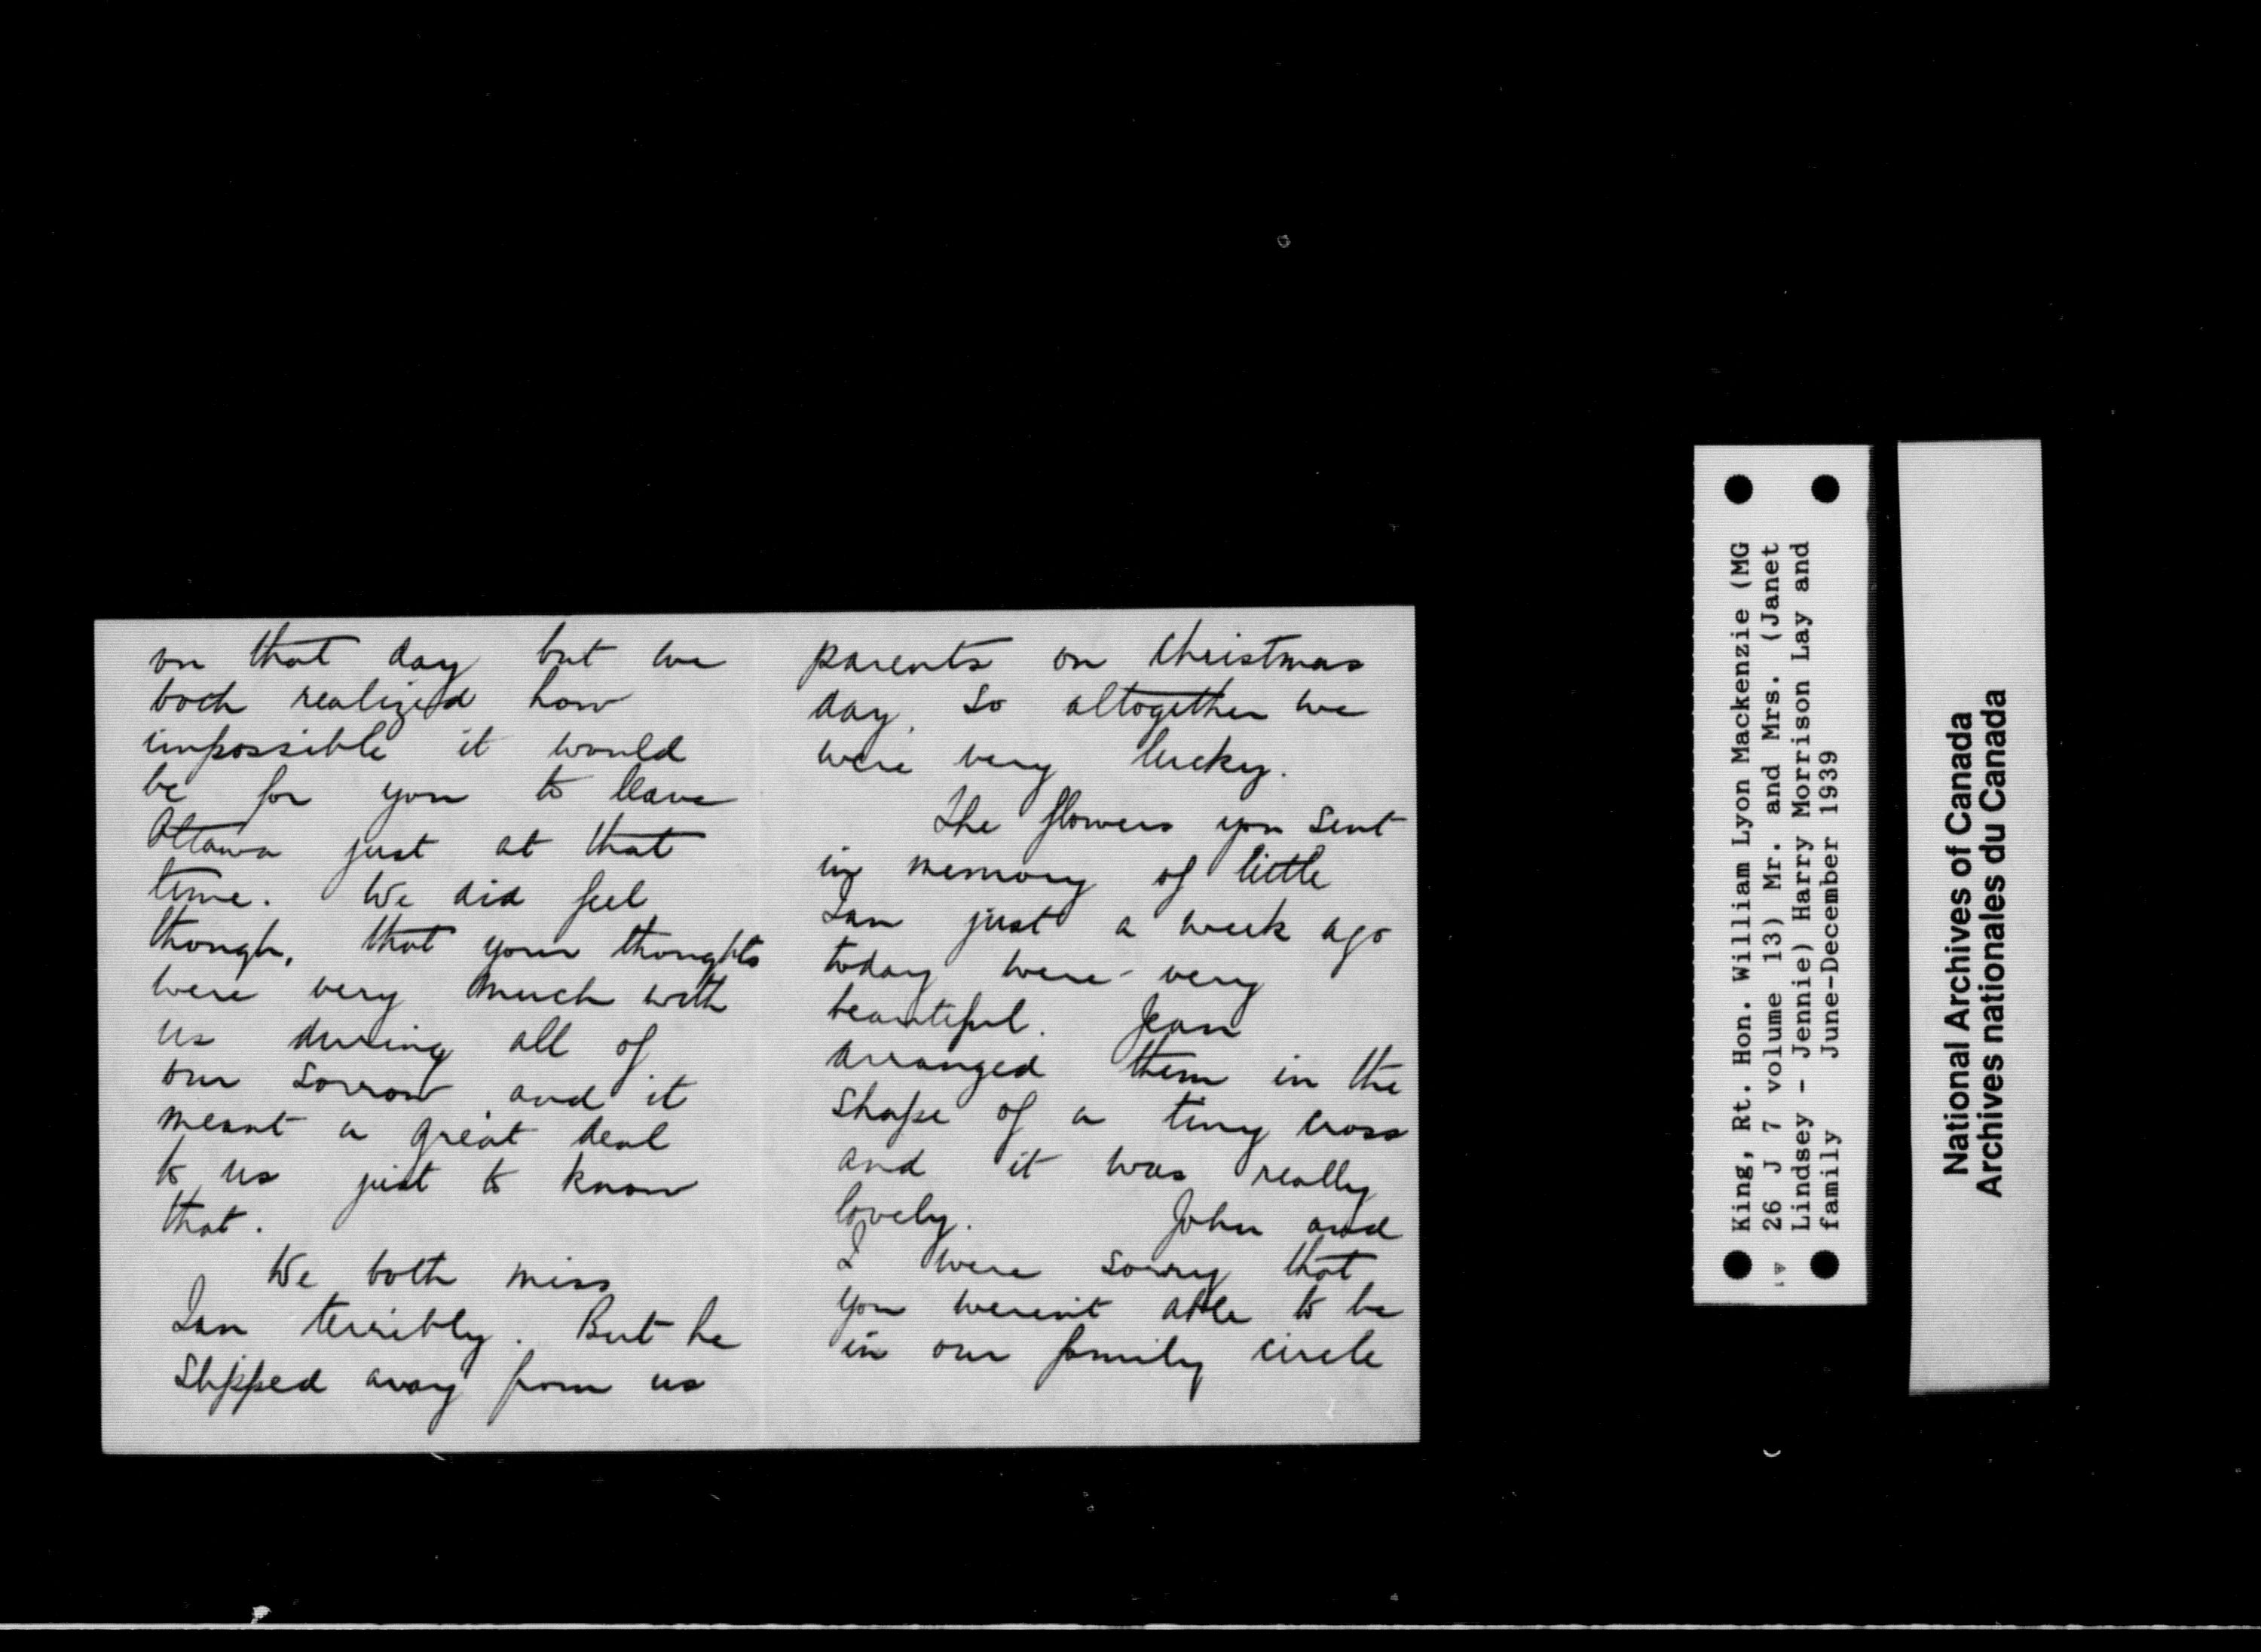 on that day but we
both realized how
impossible it would
be for you to leave
Ottawa just at that
time. We did feel
though, that your thoughts
were very much with
us during all of
our sorrow and it
meant a great deal
to us just to know
that.
We both miss
Ian terribly. But he
slipped away from us
parents on Christmas
day. So altogether we
were very lucky.
The flowers you sent
in memory of little
Ian just a week ago
today were very
beautiful. Jean
arranged them in the
shape of a tiny cross
and it was really
lovely. John and
I were sorry that
you weren't able to be
in our family circle
King, Rt. Hon. William Lyon Mackenzie (MG
26 J 7 volume 13) Mr. and Mrs. (Janet
Lindsey - Jennie) Harry Morrison Lay and
family June-December 1939
National Archives of Canada
Archives nationales du Canada